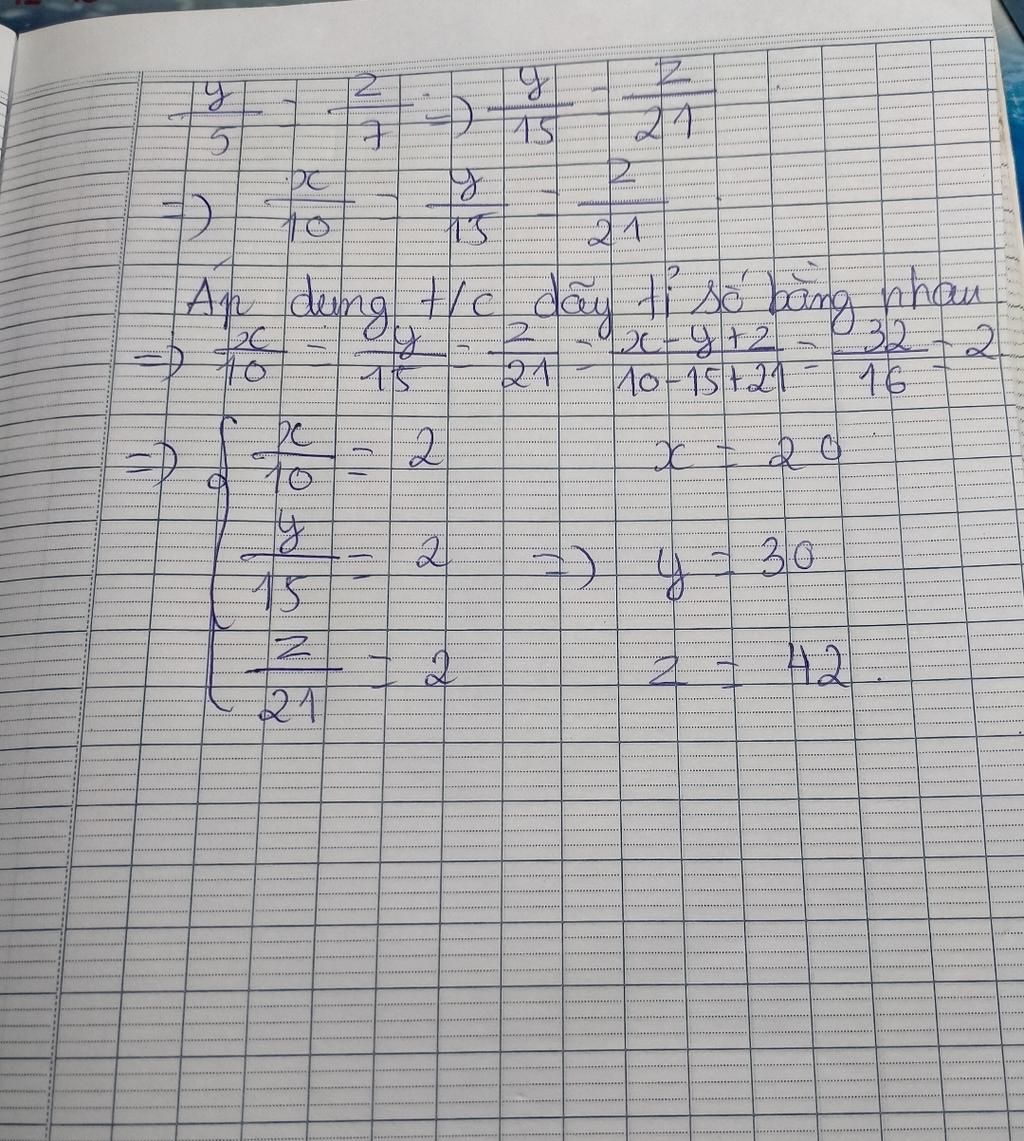 y/5 = z/7 => y/15 = z/21
=> x/10 = y/15 = z/21
Áp dụng t/c dãy tỉ số bằng nhau
=> x/10 = y/15 = z/21 = x-y+z/10-15+21 = 32/16 = 2
=> { x/10 = 2 x = 20
y/15 = 2 => y = 30
z/21 = 2 z = 42.